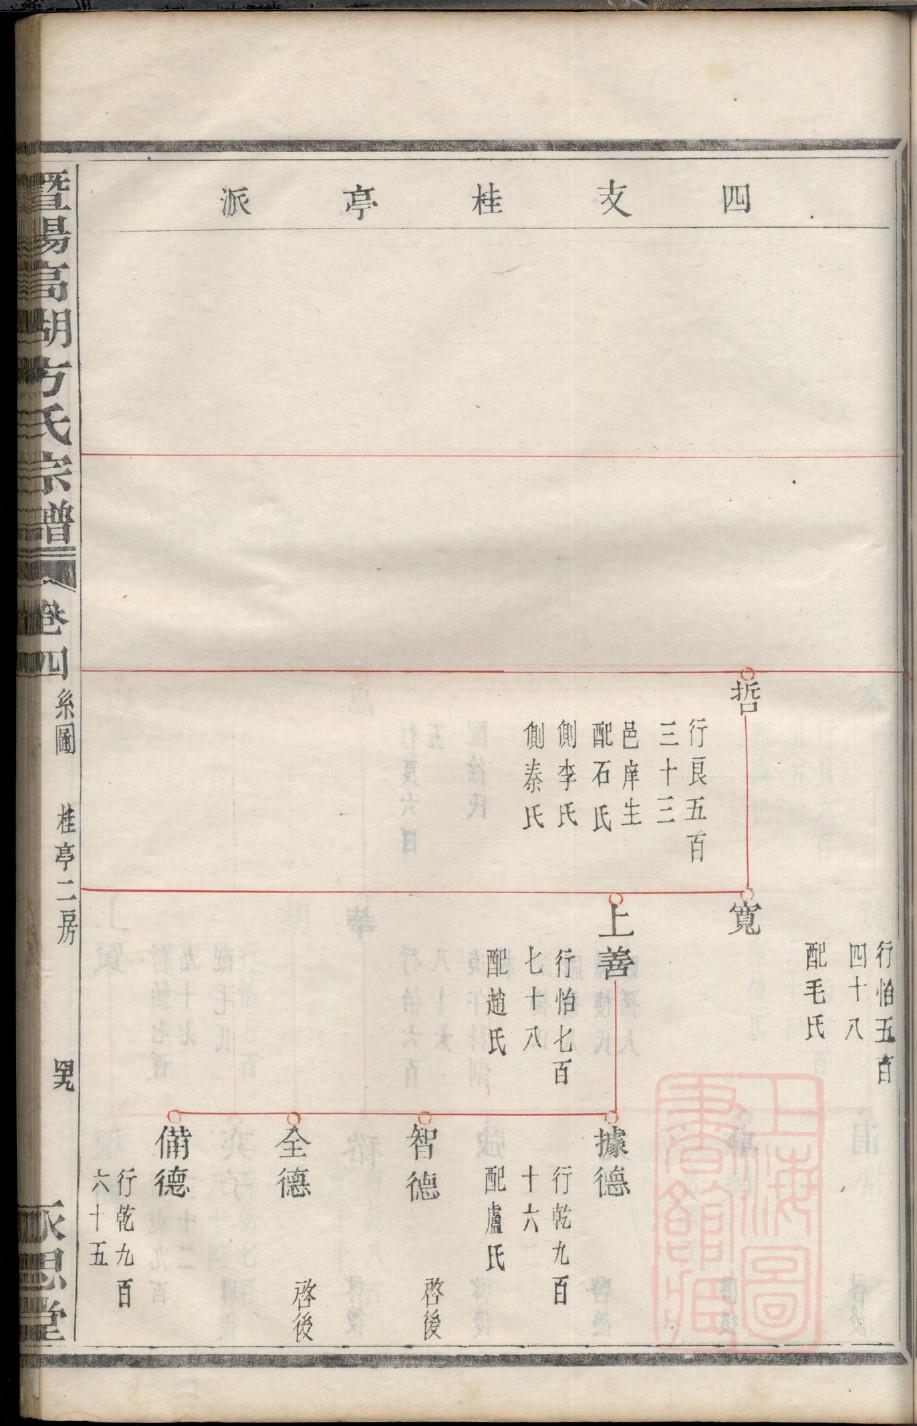 四支桂亭派
哲
行良五百
三十三
邑庠生
配石氏
側李氏
側泰氏
行怡五百
四十八
配毛氏
寬
上善
行怡七百
七十八
配趙氏
據德
行乾九百
十六
配盧氏
智德
啓後
全德
啓後
備德
行乾九百
六十五
暨陽高湖方氏宗譜
卷四
系圖
桂亭二房
思堂
上海圖書館藏